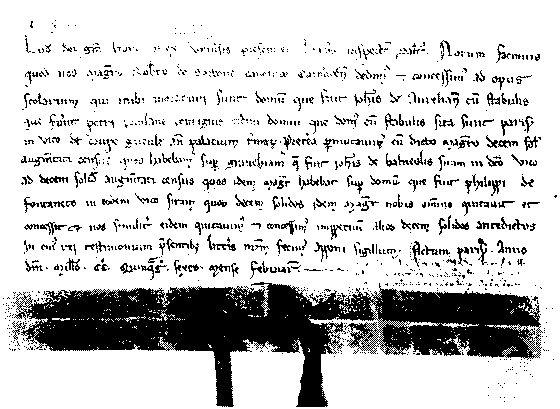 Lud' dei grã Franc' rex Univsis psentes litt'as inspectur' salt'. Notum facimus
quod nos magrõ Robto de Sorbona canonico Camacen' dedim' et concessim' ad opus
scolarium qui inibi moraturi sunt domum que fuit joh'is de Aurelian' cũ stabulis
que fuerunt petri contiguis eidem domui que dom' cũ stabulis sita sunt paris'
in vico de coupe gueule añ palacium tmar' Preterea pmutavim' cũ dicto magrõ decem sol'
augmentati census quos habebam' sup que fuit joh'is de balneolis sitam in deo vico
ad decem solid' augmentati census quos idem magr' habebat sup domũ que fuit philippi de
fontaneto in eodem vico sitam quos decem solidos idem magr' nobis omnino quitavit et
concessit et nos similit' eidem quitavim' et concessim' imppetuum alios decem solidos antedictos
In cui' rei testimonium psentib' litt'is nrm fecim' apponi sigillum. Actum paris' Anno
dni millo. CC. Quinqg' sexto. mense Februar'.